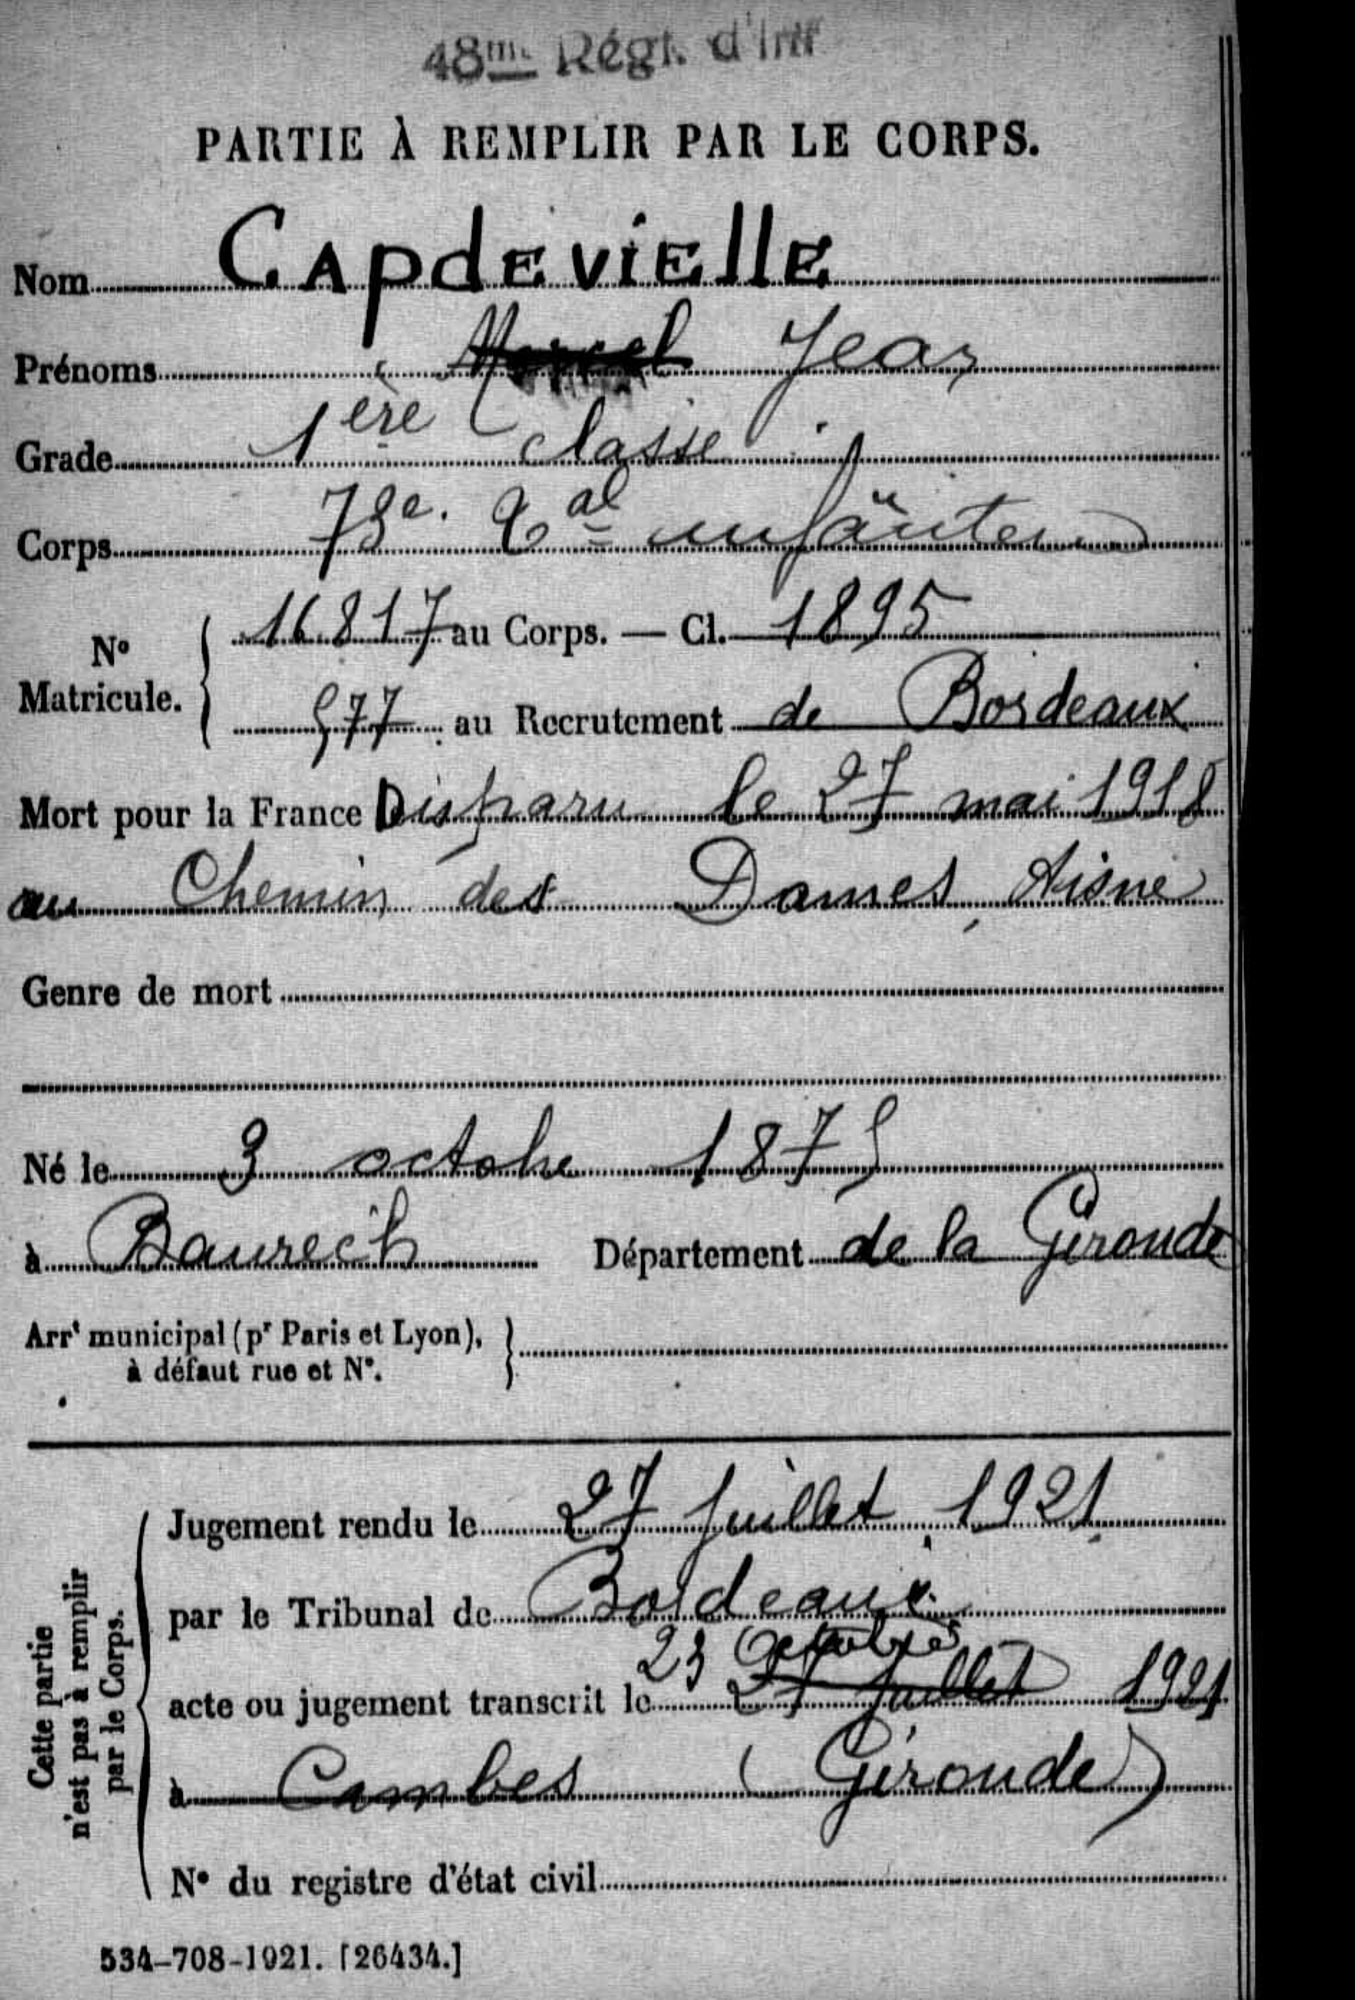 48me Régt. d'Inf
PARTIE À REMPLIR PAR LE CORPS.
Nom CApdEViEllE
Prénoms Marcel Jean
Grade 1ère classe
Corps 73e. Bal infanterie
No Matricule. 16817 au Corps. — Cl. 1895
577 au Recrutement de Bordeaux
Mort pour la France Disparu le 27 mai 1918
au Chemin des Dames, Aisne
Genre de mort
Né le 3 octobre 1875
à Baurech Département de la Gironde
Arrt municipal (pr Paris et Lyon),
à défaut rue et No.
Cette partie
n'est pas à remplir
par le Corps.
Jugement rendu le 27 Juillet 1921
par le Tribunal de Bordeaux
23 Octobre
acte ou jugement transcrit le 27 Juillet 1921
à Cambes (Gironde)
No du registre d'état civil
534-708-1921. [26434.]